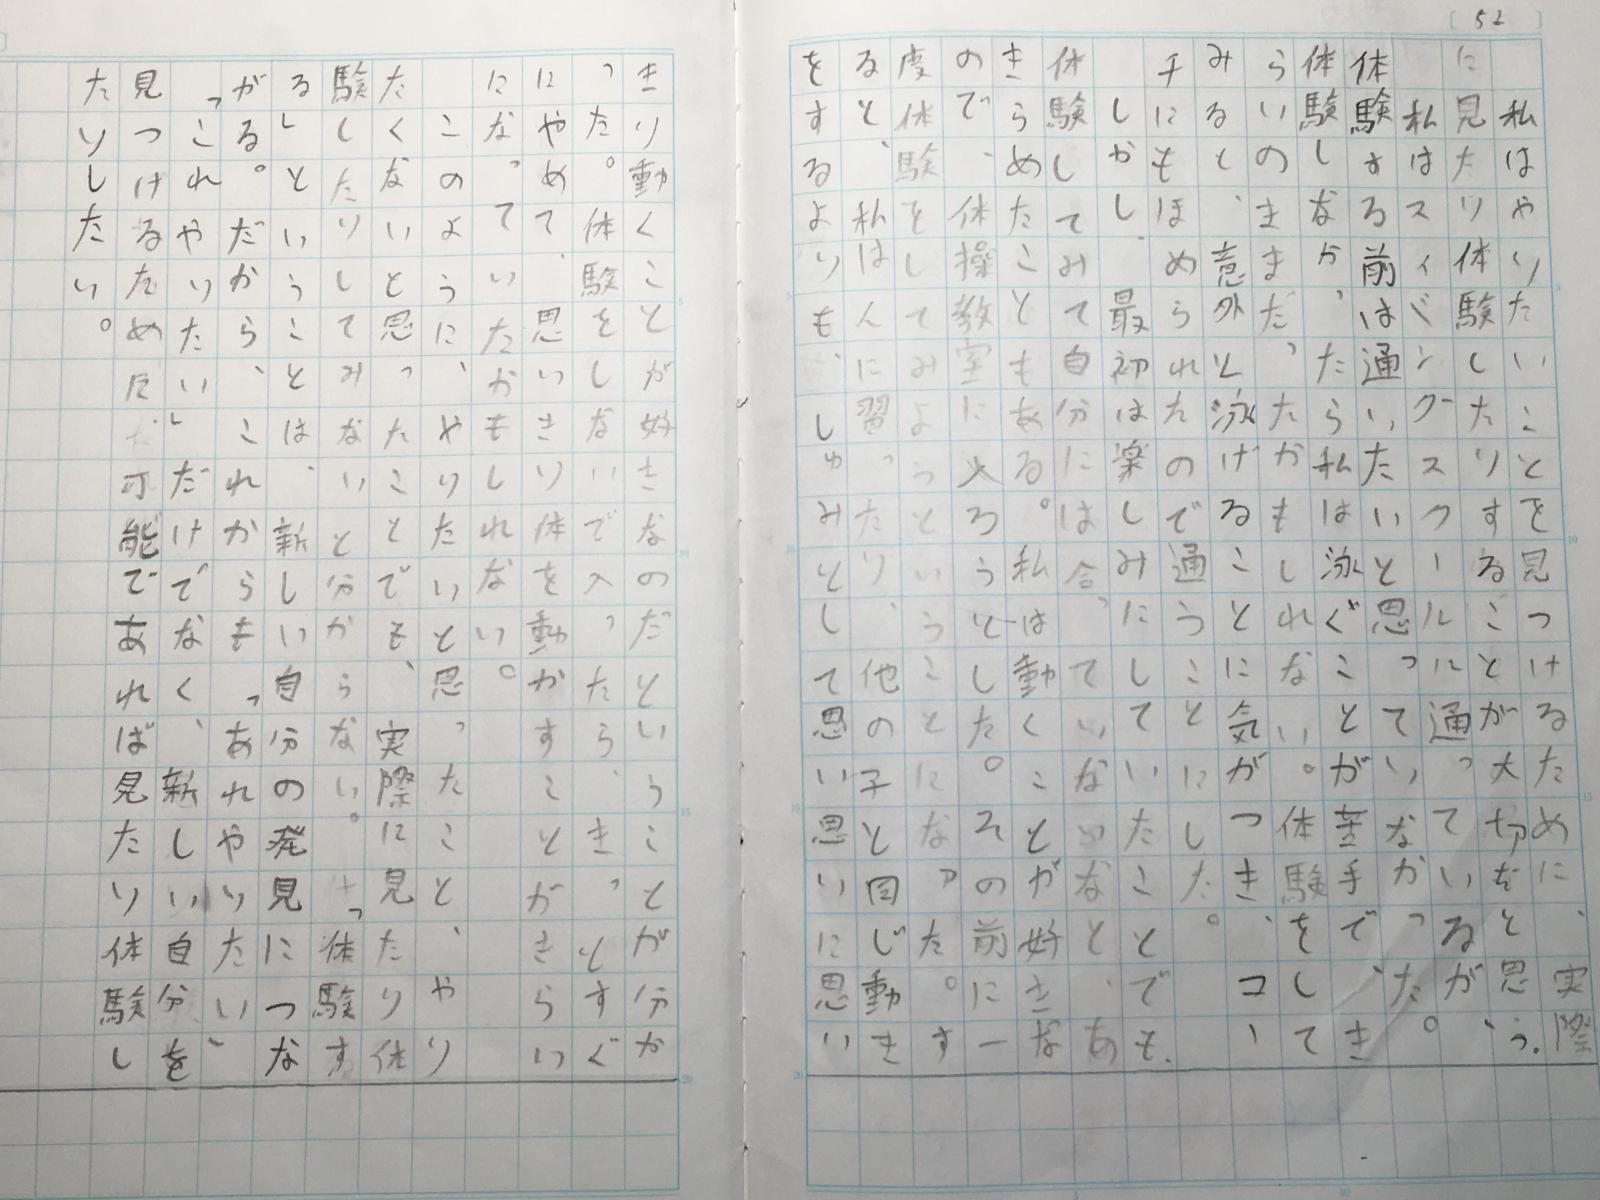 52
私はやりたいことを見つけるために、実際
に見たり体験したりすることが大切だと思う。
私はスイミングスクールに通っているが、
体験する前は通いたいと思っていなかった。
体験しなかったら私は泳ぐことが苦手で、き
らいのままだったかもしれない。体験をして
みると、意外と泳げることに気がつき、コー
チにもほめられたので通うことにした。
しかし、最初は楽しみにしていたことでも、
体験してみて自分には合っていないなと、あ
きらめたこともある。私は動くことが好きな
ので、体操教室に入ろうとした。その前に一
度体験をしてみようということになった。す
ると、私はんに習ったり、他の子と同じ動き
をするよりも、しゅみとして思い思いに思い
きり動くことが好きなのだということが分か
った。体験をしないで入ったら、きっとすぐ
にやめて、思いきり体を動かすことがきらい
になっていたかもしれない。
このように、やりたいと思ったこと、やり
たくないと思ったことでも、実際に見たり体
験したりしてみないと分からない。「体験す
る」ということは、新しい自分の発見につな
がる。だから、これからも「あれやりたい、
これやりたい」だけでなく、新しい自分を
見つけるため 可能であれば見たり体験し
たりしたい。